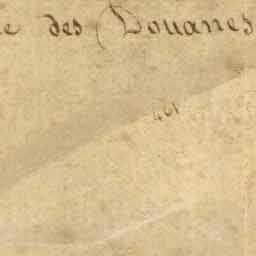 e des Douanes
461